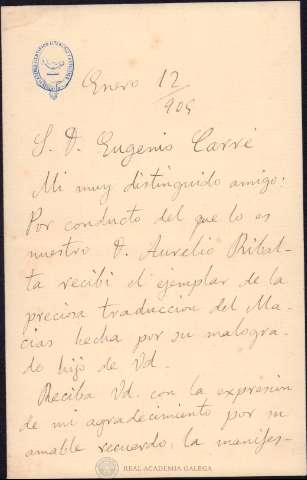 Enero 12/905
S. D. Eugenio Carré
Mi muy distinguido amigo:
Por conducto del que lo es
nuestro D. Aurelio Ribal-
ta recibí el ejemplar de la
preciosa traducción del Ma-
cias hecha por su malogra-
do hijo de Vd.
Reciba Vd. con la expresión
de mi agradecimiento por su
amable recuerdo, la manifes-
REAL ACADEMIA GALEGA